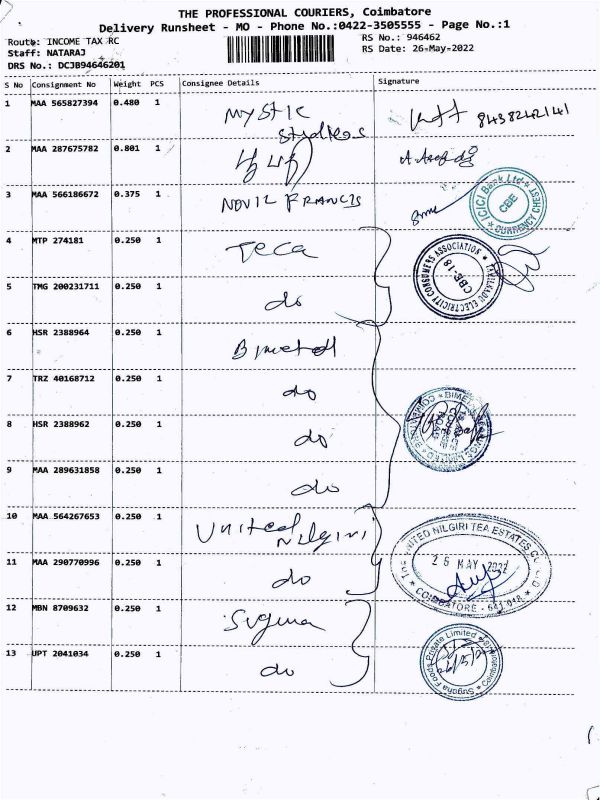 THE PROFESSIONAL COURIERS, Coimbatore
Delivery Runsheet - MO - Phone No.:0422-3505555 - Page No.:1
Route: INCOME TAX RC
RS No.: 946462
Staff: NATARAJ
RS Date: 26-May-2022
DRS No.: DCJB94646201
S No Consignment No Weight PCS Consignee Details Signature
1 MAA 565827394 0.480 1 Mystic Studios 8438242141
2 MAA 287675782 0.801 1
3 MAA 566186672 0.375 1 NOVIL FRANCIS
ICICI Bank Ltd CURRENCY CHEST CBE
4 MTP 274181 0.250 1 Teca
TAMILNADU ELECTRICITY CONSUMERS ASSOCIATION CBE-18
5 TMG 200231711 0.250 1 do
6 HSR 2388964 0.250 1 Bimetal
7 TRZ 40168712 0.250 1 do
8 HSR 2388962 0.250 1 do
9 MAA 289631858 0.250 1 do
10 MAA 564267653 0.250 1 United Nilgiri
THE UNITED NILGIRI TEA ESTATES CO. LTD
26 MAY 2022
COIMBATORE - 641 018
11 MAA 290770996 0.250 1 do
12 MBN 8709632 0.250 1 Suguna
13 UPT 2041034 0.250 1 do
Suguna Foods Private Limited Coimbatore